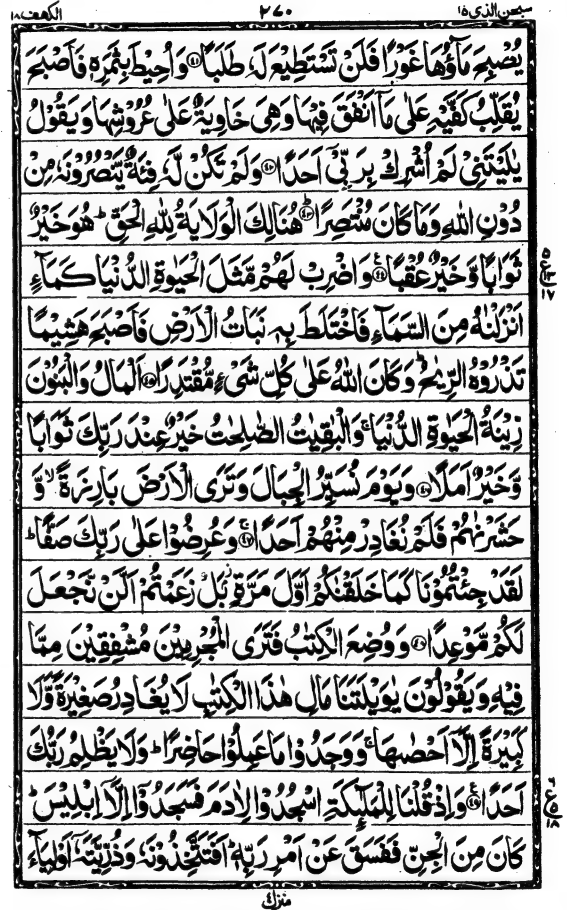 سبحن الذي ١٥ ٢٧٠ الكهف ١٨
يُصْبِحَ مَآؤُهَا غَوْرًا فَلَنْ تَسْتَطِيْعَ لَهٗ طَلَبًا ﴿۴۱﴾ وَاُحِيْطَ بِثَمَرِهٖ فَاَصْبَحَ
يُقَلِّبُ كَفَّيْهِ عَلٰى مَاۤ اَنْفَقَ فِيْهَا وَهِىَ خَاوِيَةٌ عَلٰى عُرُوْشِهَا وَيَقُوْلُ
يٰلَيْتَنِىْ لَمْ اُشْرِكْ بِرَبِّىْۤ اَحَدًا ﴿۴۲﴾ وَلَمْ تَكُنْ لَّهٗ فِئَةٌ يَّنْصُرُوْنَهٗ مِنْ
دُوْنِ اللّٰهِ وَمَا كَانَ مُنْتَصِرًا ؕ﴿۴۳﴾ هُنَالِكَ الْوَلَايَةُ لِلّٰهِ الْحَقِّ ؕ هُوَ خَيْرٌ
ثَوَابًا وَّخَيْرٌ عُقْبًا ﴿۴۴﴾ وَاضْرِبْ لَهُمْ مَّثَلَ الْحَيٰوةِ الدُّنْيَا كَمَآءٍ
اَنْزَلْنٰهُ مِنَ السَّمَآءِ فَاخْتَلَطَ بِهٖ نَبَاتُ الْاَرْضِ فَاَصْبَحَ هَشِيْمًا
تَذْرُوْهُ الرِّيٰحُ ؕ وَكَانَ اللّٰهُ عَلٰى كُلِّ شَىْءٍ مُّقْتَدِرًا ﴿۴۵﴾ اَلْمَالُ وَالْبَنُوْنَ
زِيْنَةُ الْحَيٰوةِ الدُّنْيَا ۚ وَالْبٰقِيٰتُ الصّٰلِحٰتُ خَيْرٌ عِنْدَ رَبِّكَ ثَوَابًا
وَّخَيْرٌ اَمَلًا ﴿۴۶﴾ وَيَوْمَ نُسَيِّرُ الْجِبَالَ وَتَرَى الْاَرْضَ بَارِزَةً ۙ وَّ
حَشَرْنٰهُمْ فَلَمْ نُغَادِرْ مِنْهُمْ اَحَدًا ۚ﴿۴۷﴾ وَعُرِضُوْا عَلٰى رَبِّكَ صَفًّا ؕ
لَقَدْ جِئْتُمُوْنَا كَمَا خَلَقْنٰكُمْ اَوَّلَ مَرَّةٍۭ ؗ بَلْ زَعَمْتُمْ اَلَّنْ نَّجْعَلَ
لَكُمْ مَّوْعِدًا ﴿۴۸﴾ وَوُضِعَ الْكِتٰبُ فَتَرَى الْمُجْرِمِيْنَ مُشْفِقِيْنَ مِمَّا
فِيْهِ وَيَقُوْلُوْنَ يٰوَيْلَتَنَا مَالِ هٰذَا الْكِتٰبِ لَا يُغَادِرُ صَغِيْرَةً وَّلَا
كَبِيْرَةً اِلَّاۤ اَحْصٰٮهَا ۚ وَوَجَدُوْا مَا عَمِلُوْا حَاضِرًا ؕ وَلَا يَظْلِمُ رَبُّكَ
اَحَدًا ﴿۴۹﴾ وَاِذْ قُلْنَا لِلْمَلٰٓٮِٕكَةِ اسْجُدُوْا لِاٰدَمَ فَسَجَدُوْۤا اِلَّاۤ اِبْلِيْسَ ؕ
كَانَ مِنَ الْجِنِّ فَفَسَقَ عَنْ اَمْرِ رَبِّهٖ ؕ اَفَتَتَّخِذُوْنَهٗ وَذُرِّيَّتَهٗۤ اَوْلِيَآءَ